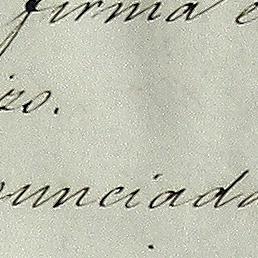 firma e
izo.
nunciada